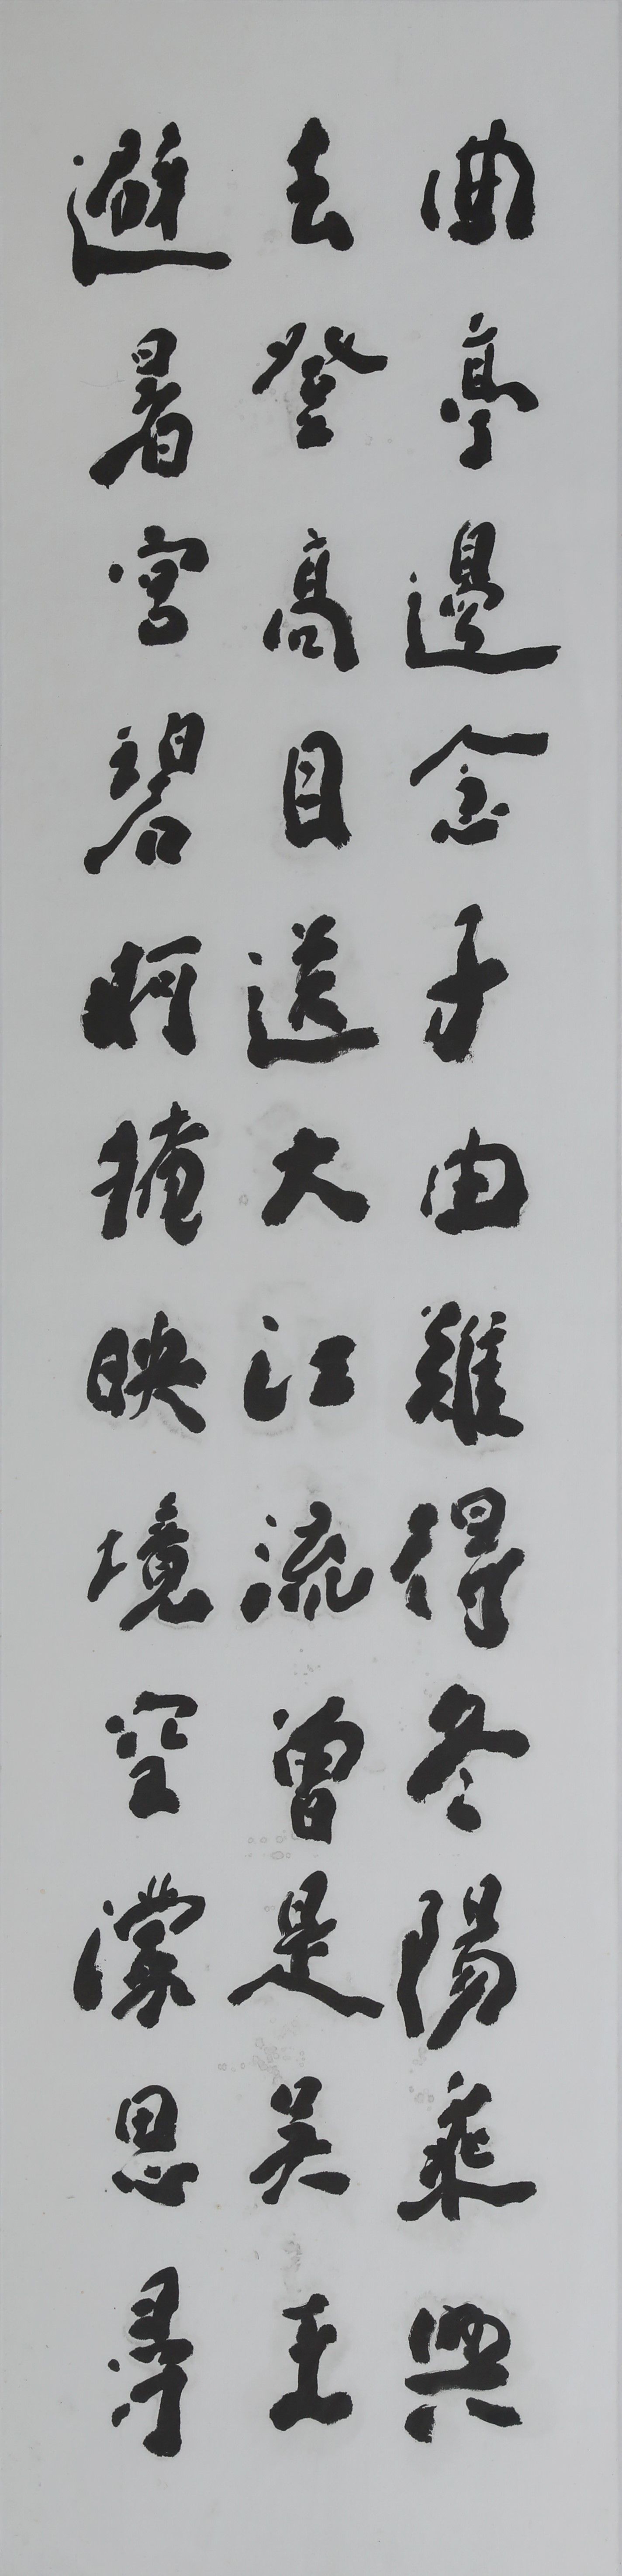 曲亭邊念子由難得冬陽乘興
去登高目送大江流曾是吴王
避暑宮碧婀掩映境空濛思尋